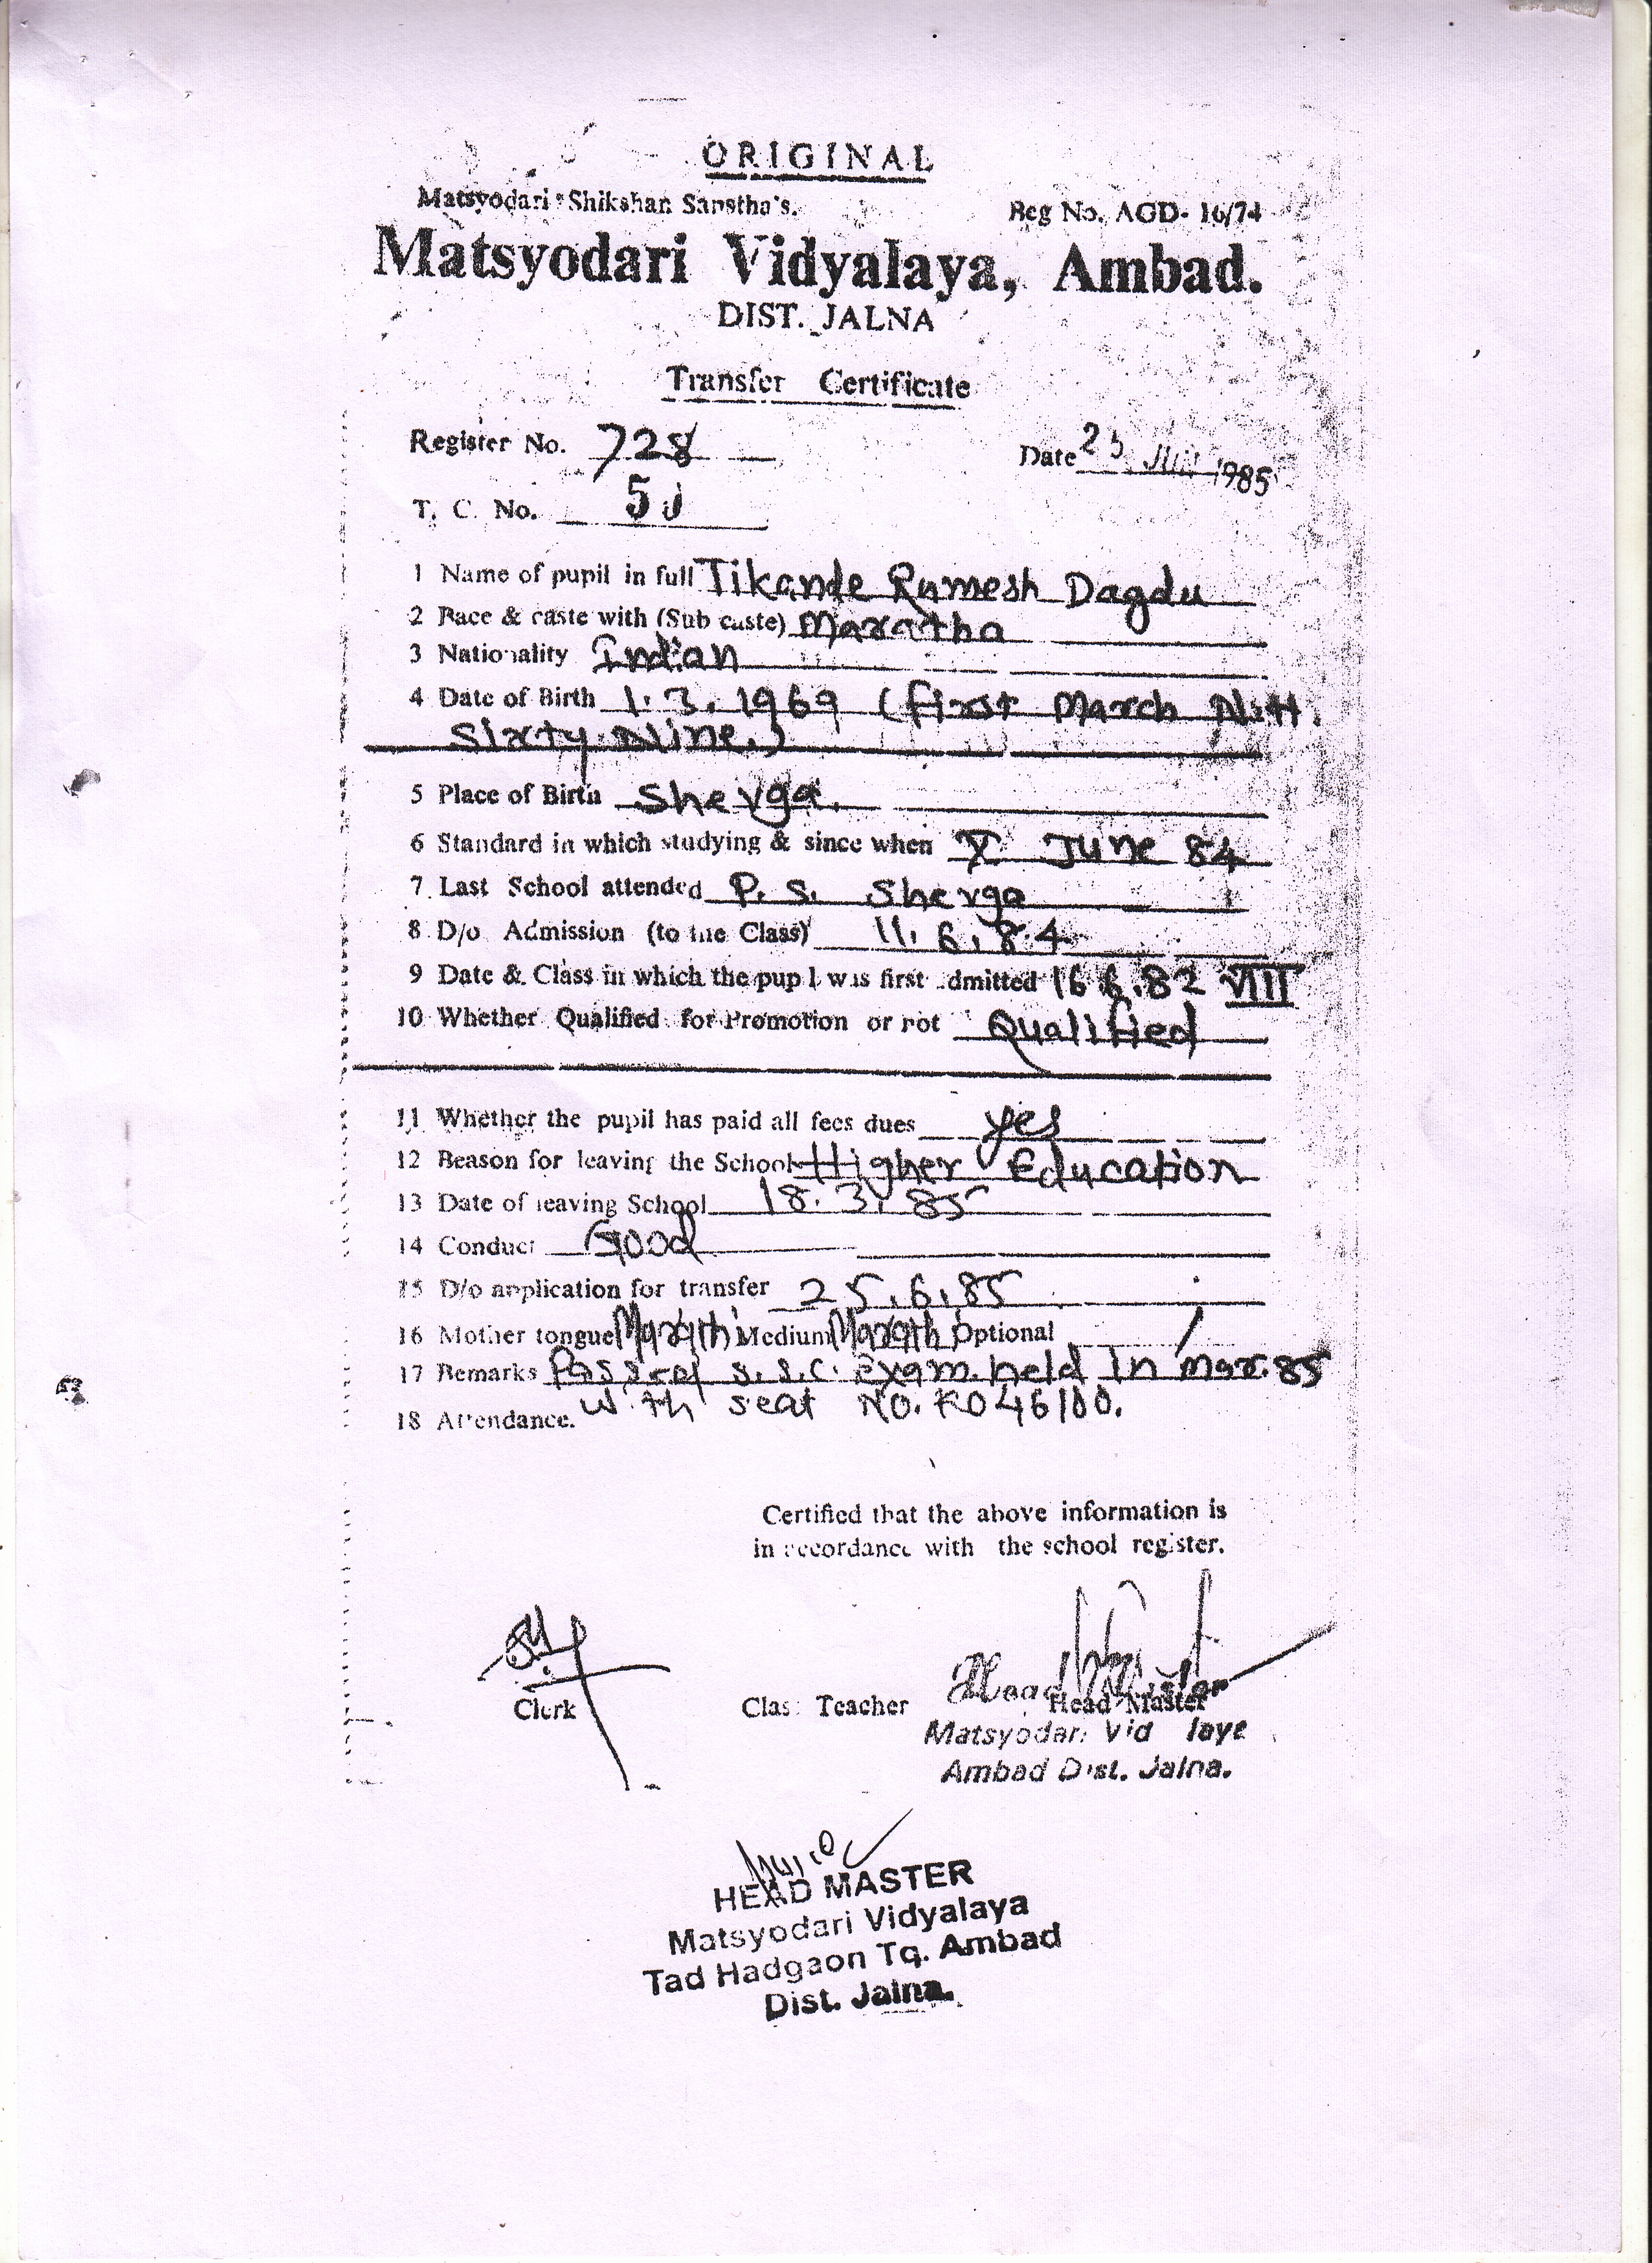 ORIGINAL
Matsyodari Shikshan Sanstha's. Reg No. AGD- 16/74
Matsyodari Vidyalaya, Ambad.
DIST. JALNA
Transfer Certificate
Register No. 728 Date 25 1985
T. C. No.
1 Name of pupil in full Tikande Ramesh Dagdu
2 Race & caste with (Sub caste) Maratha
3 Nationality Indian
4 Date of Birth 1.3.1969 (first March N.H.
Sixty Nine.)
5 Place of Birth Shevga.
6 Standard in which studying & since when X June 84
7. Last School attended P. S. Shevga
8 D/o Admission (to the Class) 11.6.84
9 Date & Class in which the pupil was first admitted 16.6.82 VIII
10 Whether Qualified for Promotion or not Qualified
11 Whether the pupil has paid all fees dues yes
12 Reason for leaving the School Higher Education
13 Date of leaving School 18.3.85
14 Conduct Good
15 D/o application for transfer 25.6.85
16 Mother tongue Marathi Medium Marathi Optional
17 Remarks Passed S.S.C. Exam. held In Mar. 85
with seat NO. R046100.
18 Attendance.
Certified that the above information is
in accordance with the school register.
Clerk Class Teacher Head Master
Head Master
Matsyodari Vidyalaya
Ambad Dist. Jalna.
HEAD MASTER
Matsyodari Vidyalaya
Tad Hadgaon Tq. Ambad
Dist. Jalna.